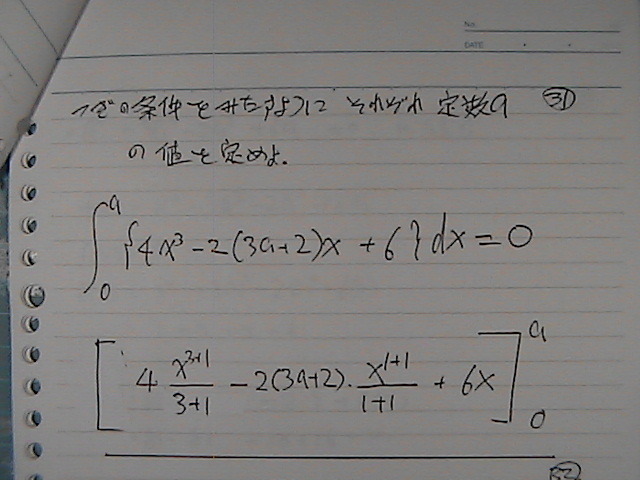 No.
DATE
つぎの条件をみたすように それぞれ 定数a 31
の値を定めよ.
∫₀ᵃ {4x³ - 2(3a+2)x + 6} dx = 0
[4 x³⁺¹/3+1 - 2(3a+2)・x¹⁺¹/1+1 + 6x]₀ᵃ